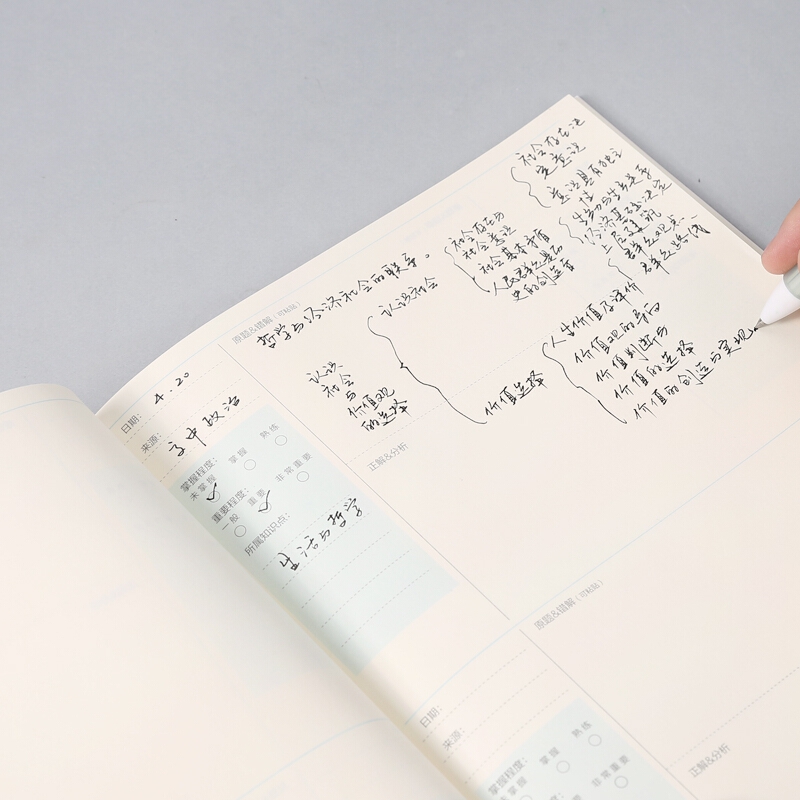 原题&错解（可粘贴）
哲学与经济社会的联系。
日期：4.20
来源：高中政治
掌握程度：
未掌握 掌握 熟练
重要程度：
一般 重要 非常重要
所属知识点：
生活与哲学
认识
社会
与
价值观
的选择
认识社会
社会存在与
社会意识
社会基本矛盾
人民群众是历
史的创造者
社会存在决
定意识
意识具有独立
性
生产力与生产关系
经济基础决定
上层建筑
群众观点
群众路线
价值选择
人生价值及评价
价值观的导向
价值判断与
价值的选择
价值的创造与实现。
正解&分析
原题&错解（可粘贴）
日期：
来源：
掌握程度：
未掌握 掌握 熟练
非常重要
正解&分析